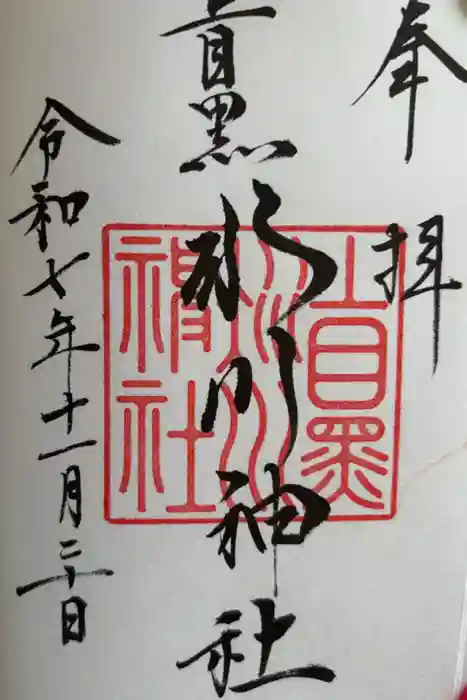 奉拝
上目黒
氷川神社
令和七年十一月二十日
上目黒
氷川
神社